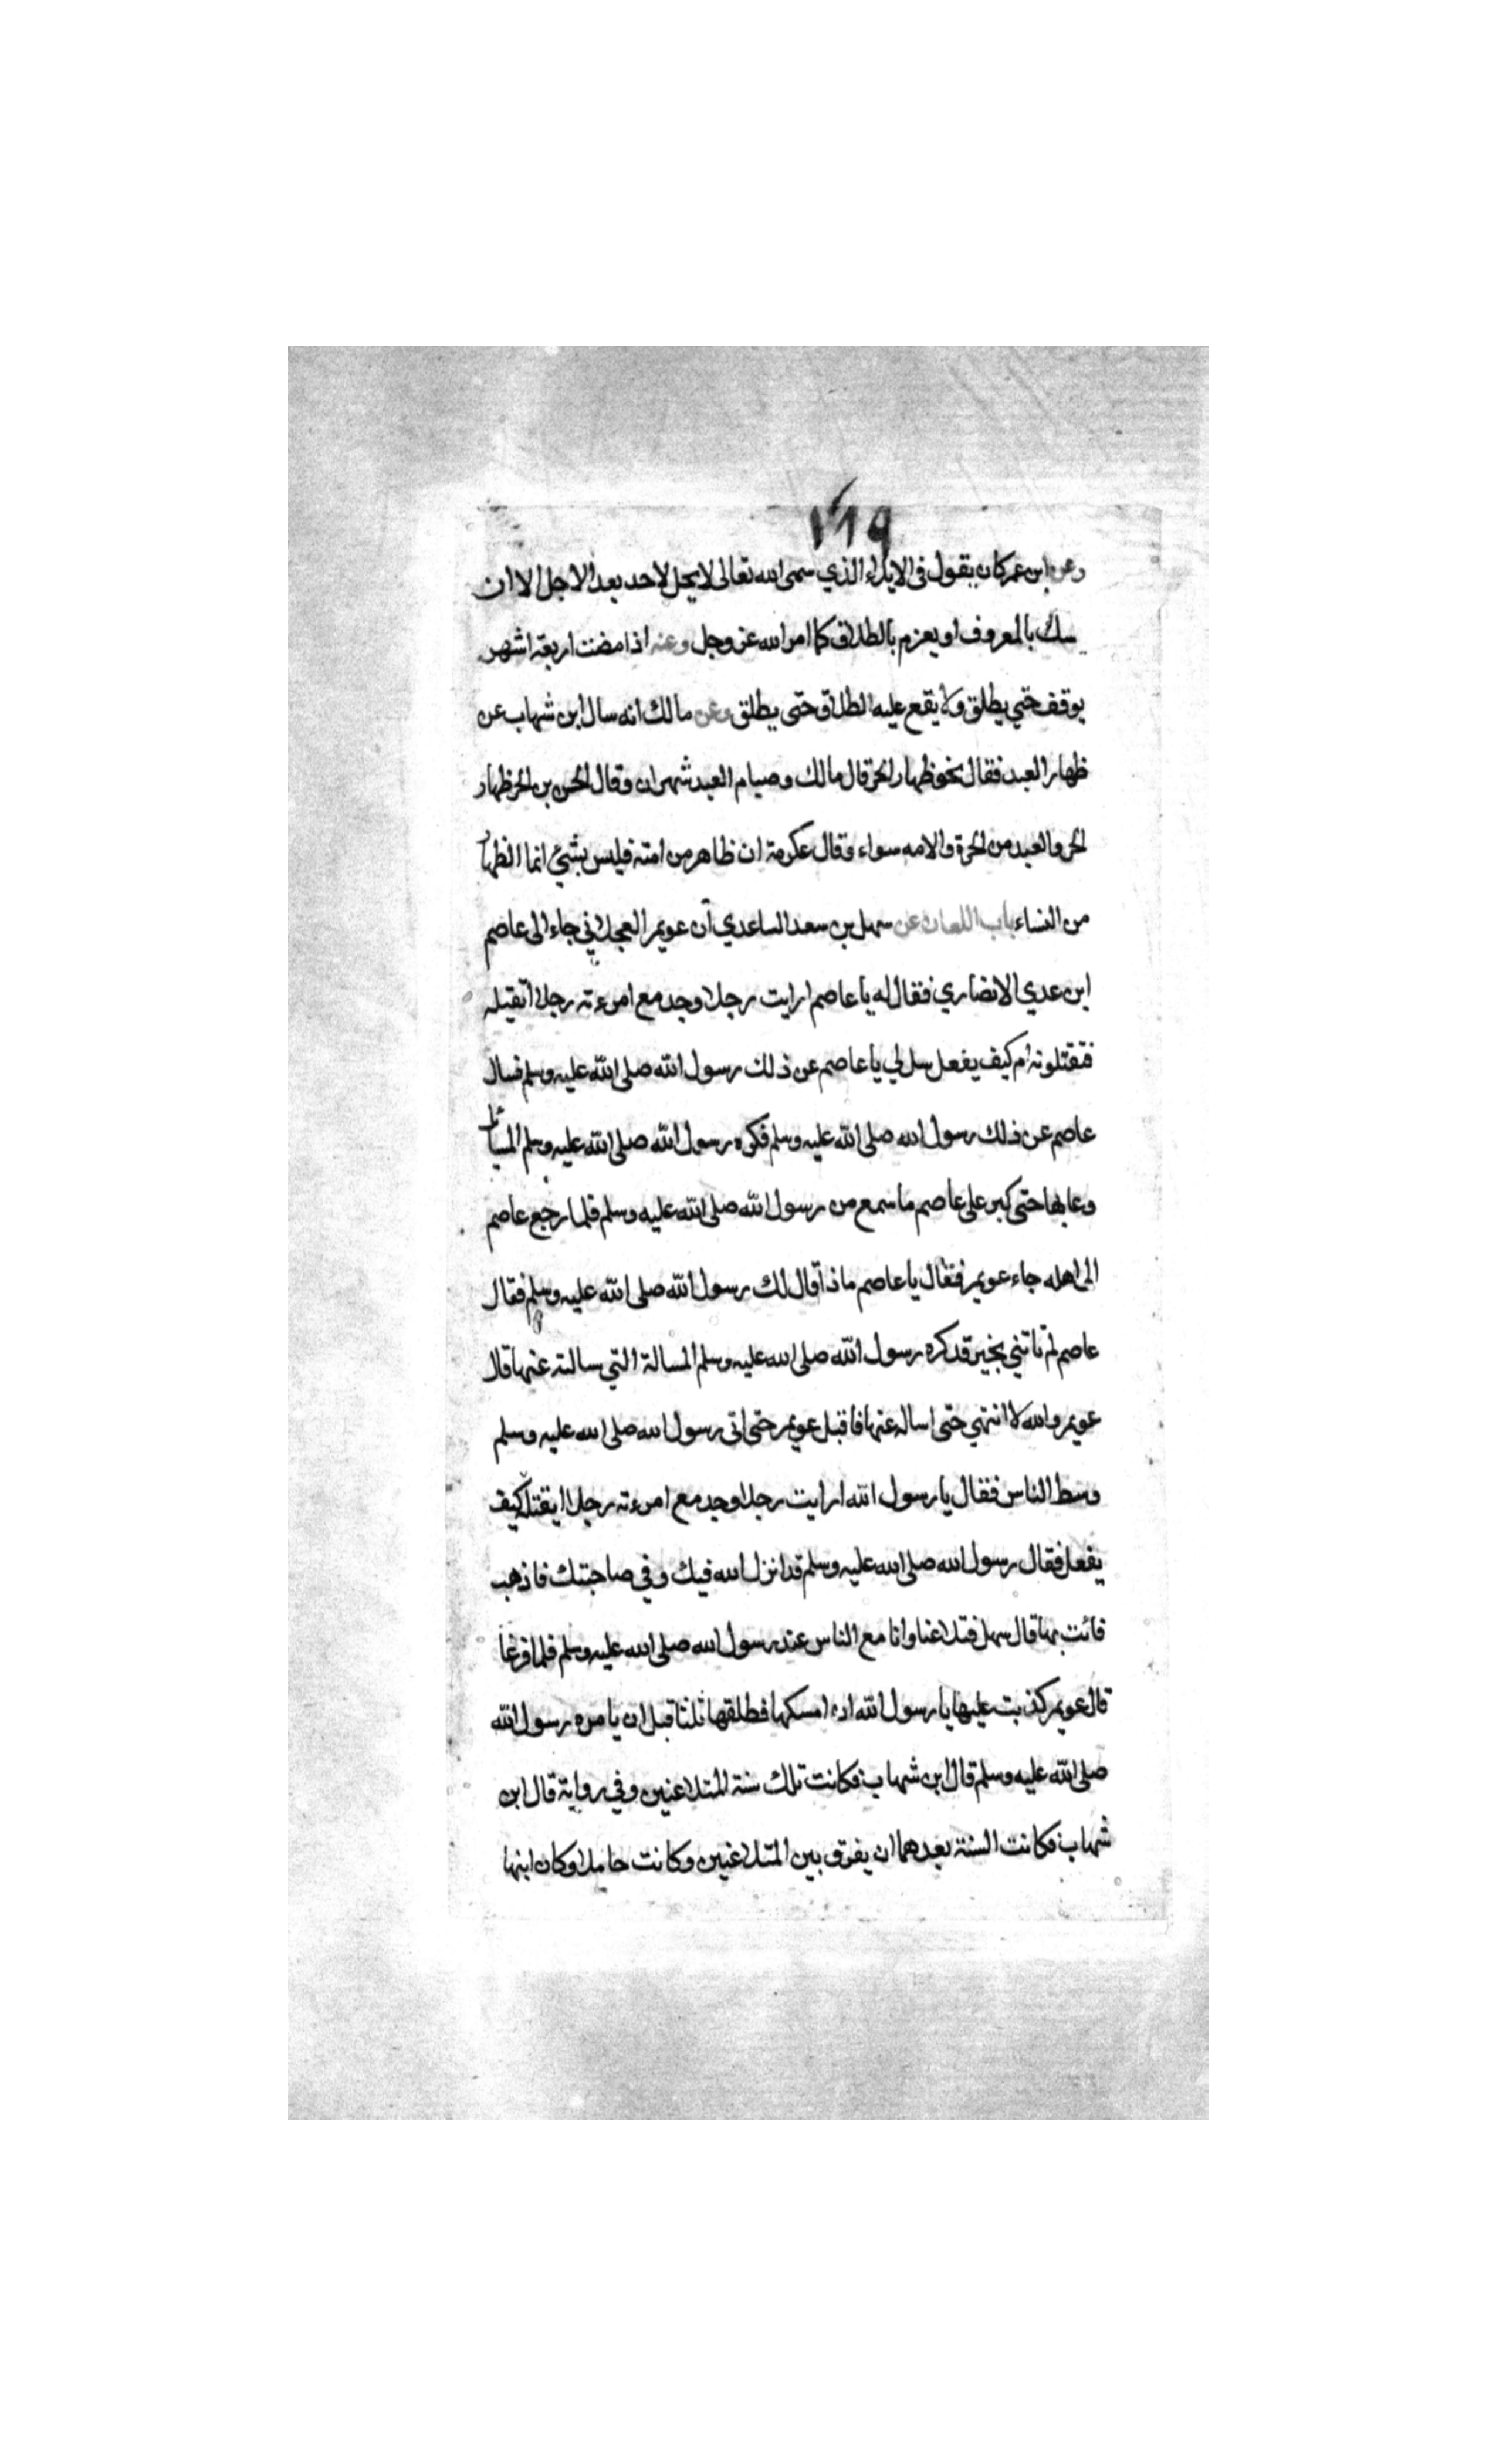 ١٦٩
وعن ابن عمر كان يقول فى الايلاء الذي سمى الله تعالى لا يحل لاحد بعد الاجل الا ان
يمسك بالمعروف او يعزم بالطلاق كما امر الله عز وجل وعنه اذا مضت اربعة اشهر
يوقف حتي يطلق ولا يقع عليه الطلاق حتى يطلق وعن مالك انه سال ابن شهاب عن
ظهار العبد فقال نحو ظهار الحر قال مالك وصيام العبد شهران وقال الحسن بن الحر ظهار
الحر والعبد من الحرة والامه سواء وقال عكرمة ان ظاهر من امته فليس بشيء انما الظهار
من النساء باب اللعان عن سهل بن سعد الساعدي آن عويمر العجلاني جاء الى عاصم
ابن عدي الانصاري فقال له يا عاصم ارايت رجلا وجد مع امرءته رجلا اتقتله
فتقتلونه ام كيف يفعل سل لي يا عاصم عن ذلك رسول الله صلى الله عليه وسلم فسال
عاصم عن ذلك رسول الله صلى الله عليه وسلم فكره رسول الله صلى الله عليه وسلم المسائل
وعابها حتى كبر على عاصم ما سمع من رسول الله صلى الله عليه وسلم فلما رجع عاصم
الى اهله جاء عويمر فقال يا عاصم ماذا قال لك رسول الله صلى الله عليه وسلم فقال
عاصم لم تاتني بخير قد كره رسول الله صلى الله عليه وسلم المسالة التي سالته عنها قال
عويمر والله لا انتهي حتى اساله عنها فاقبل عويمر حتى اتى رسول الله صلى الله عليه وسلم
وسط الناس فقال يا رسول الله ارايت رجلا وجد مع امرءته رجلا ايقتله كيف
يفعل فقال رسول الله صلى الله عليه وسلم قد انزل الله فيك وفي صاحبتك فاذهب
فائت بها قال سهل فتلاعنا وانا مع الناس عند رسول الله صلى الله عليه وسلم فلما فرغا
قال عويمر كذبت عليها يا رسول الله ان امسكها فطلقها ثلثا قبل ان يامره رسول الله
صلى الله عليه وسلم قال ابن شهاب فكانت تلك سنة المتلاعنين وفي رواية قال ابن
شهاب فكانت السنة بعدهما ان يفرق بين المتلاعنين وكانت حاملا وكان ابنها